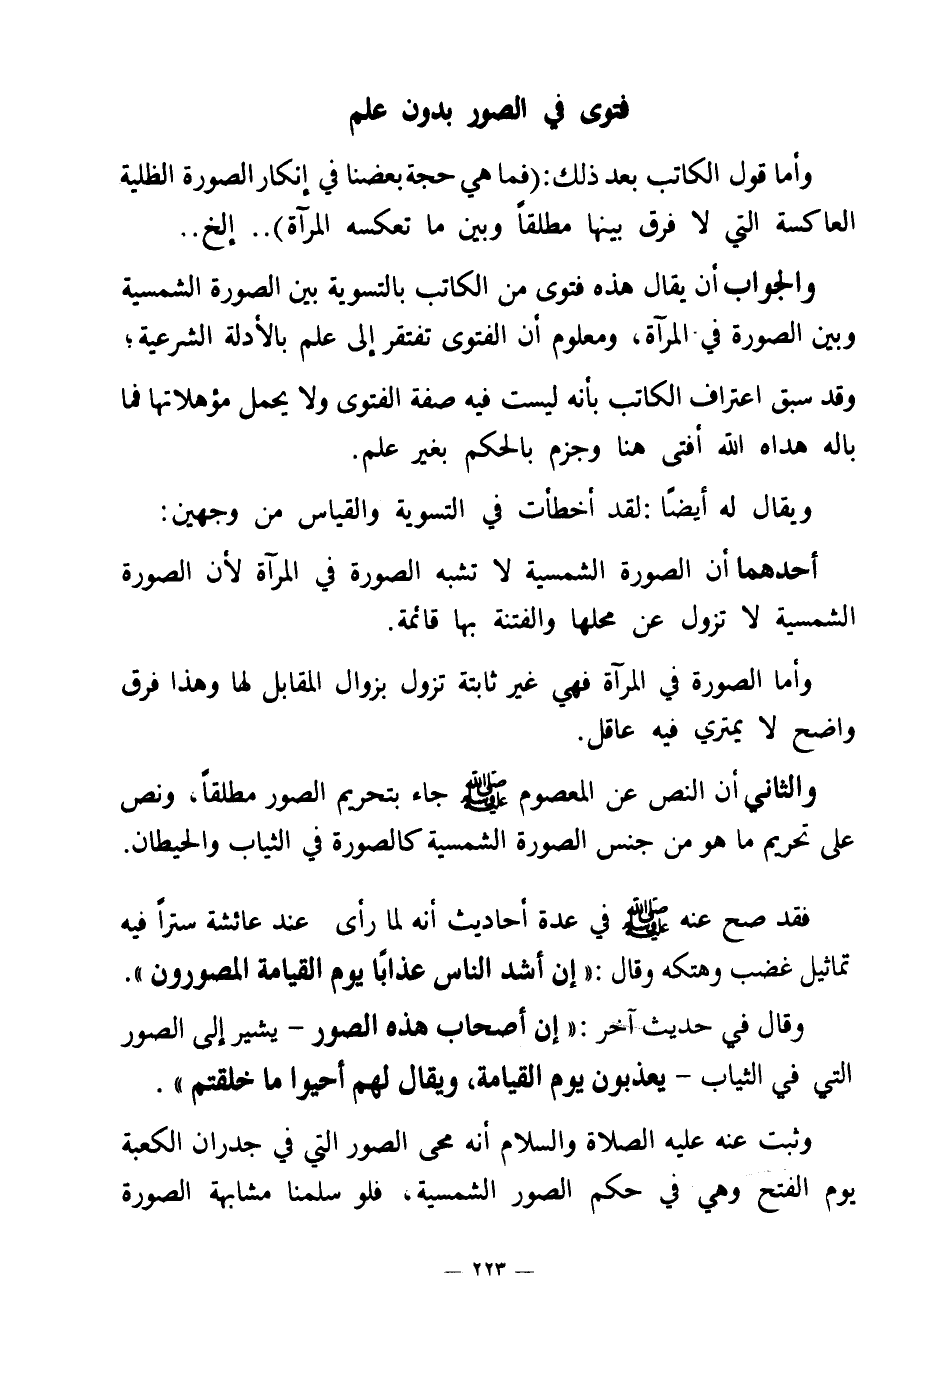 فتوى في الصور بدون علم
وأما قول الكاتب بعد ذلك:(فما هي حجة بعضنا في إنكار الصورة الظلية
العاكسة التي لا فرق بينها مطلقاً وبين ما تعكسه المرآة).. إلخ..
والجواب أن يقال هذه فتوى من الكاتب بالتسوية بين الصورة الشمسية
وبين الصورة في المرآة، ومعلوم أن الفتوى تفتقر إلى علم بالأدلة الشرعية؛
وقد سبق اعتراف الكاتب بأنه ليست فيه صفة الفتوى ولا يحمل مؤهلاتها فما
باله هداه الله أفتى هنا وجزم بالحكم بغير علم.
ويقال له أيضًا :لقد أخطأت في التسوية والقياس من وجهين:
أحدهما أن الصورة الشمسية لا تشبه الصورة في المرآة لأن الصورة
الشمسية لا تزول عن محلها والفتنة بها قائمة.
وأما الصورة في المرآة فهي غير ثابتة تزول بزوال المقابل لها وهذا فرق
واضح لا يمتري فيه عاقل.
والثاني أن النص عن المعصوم ﷺ جاء بتحريم الصور مطلقاً، ونص
على تحريم ما هو من جنس الصورة الشمسية كالصورة في الثياب والحيطان.
فقد صح عنه ﷺ في عدة أحاديث أنه لما رأى عند عائشة ستراً فيه
تماثيل غضب وهتكه وقال :« إن أشد الناس عذابًا يوم القيامة المصورون ».
وقال في حديث آخر :« إن أصحاب هذه الصور – يشير إلى الصور
التي في الثياب – يعذبون يوم القيامة، ويقال لهم أحيوا ما خلقتم » .
وثبت عنه عليه الصلاة والسلام أنه محى الصور التي في جدران الكعبة
يوم الفتح وهي في حكم الصور الشمسية، فلو سلمنا مشابهة الصورة
— ٢٢٣ —